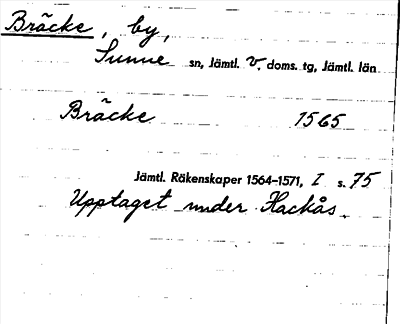 Bräcke, by,
Sunne sn, Jämtl. v. doms. tg, Jämtl. län
Bräcke 1565
Jämtl. Räkenskaper 1564–1571, I s. 75
Upptaget under Hackås.